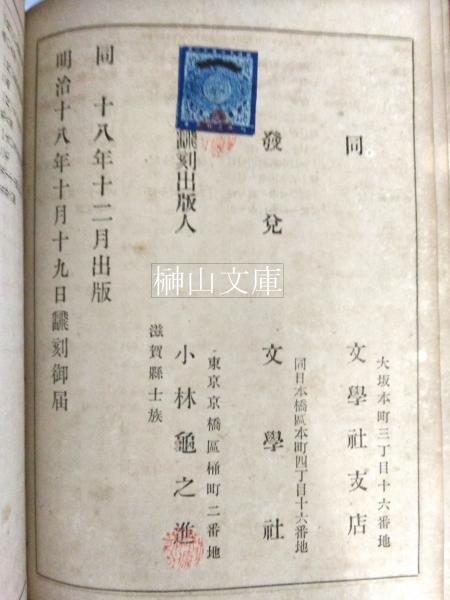 明治十八年十月十九日飜刻御届
同 十八年十二月出版
滋賀縣士族
飜刻出版人 小林龜之進
東京京橋區桶町二番地
發兌 文學社
同日本橋區本町四丁目十六番地
同 文學社支店
大坂本町三丁目十六番地
榊山文庫